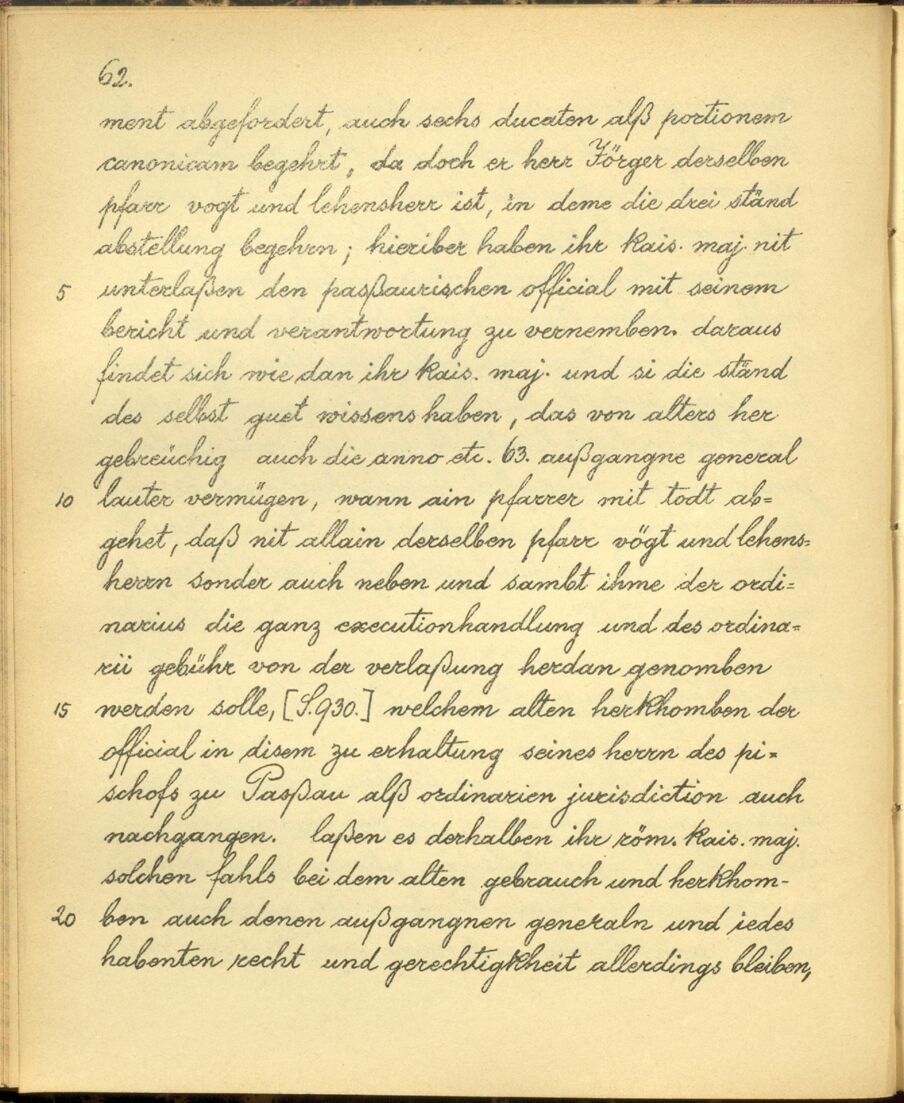 62.
ment abgefordert, auch sechs ducaten alß portionem
canonicam begehrt, da doch er herr Jörger derselben
pfarr vogt und lehensherr ist, in deme die drei ständ
abstellung begehrn; hieriber haben ihr kais. maj. nit
5 unterlaßen den paßaurischen official mit seinem
bericht und verantwortung zu vernemben. daraus
findet sich wie dan ihr kais. maj. und si die ständ
des selbst guet wissens haben, das von alters her
gebreüchig auch die anno etc. 63. außgangne general
10 lauter vermügen, wann ain pfarrer mit todt ab=
gehet, daß nit allain derselben pfarr vögt und lehens=
herrn sonder auch neben und sambt ihme der ordi=
narius die ganz executionhandlung und des ordina=
rii gebühr von der verlaßung herdan genomben
15 werden solle, [S.930.] welchem alten herkhomben der
official in disem zu erhaltung seines herrn des pi=
schofs zu Paßau alß ordinarien jurisdiction auch
nachgangen. laßen es derhalben ihr röm. kais. maj.
solchen fahls bei dem alten gebrauch und herkhom-
20 ben auch denen außgangnen generaln und iedes
habenten recht und gerechtigkheit allerdings bleiben,